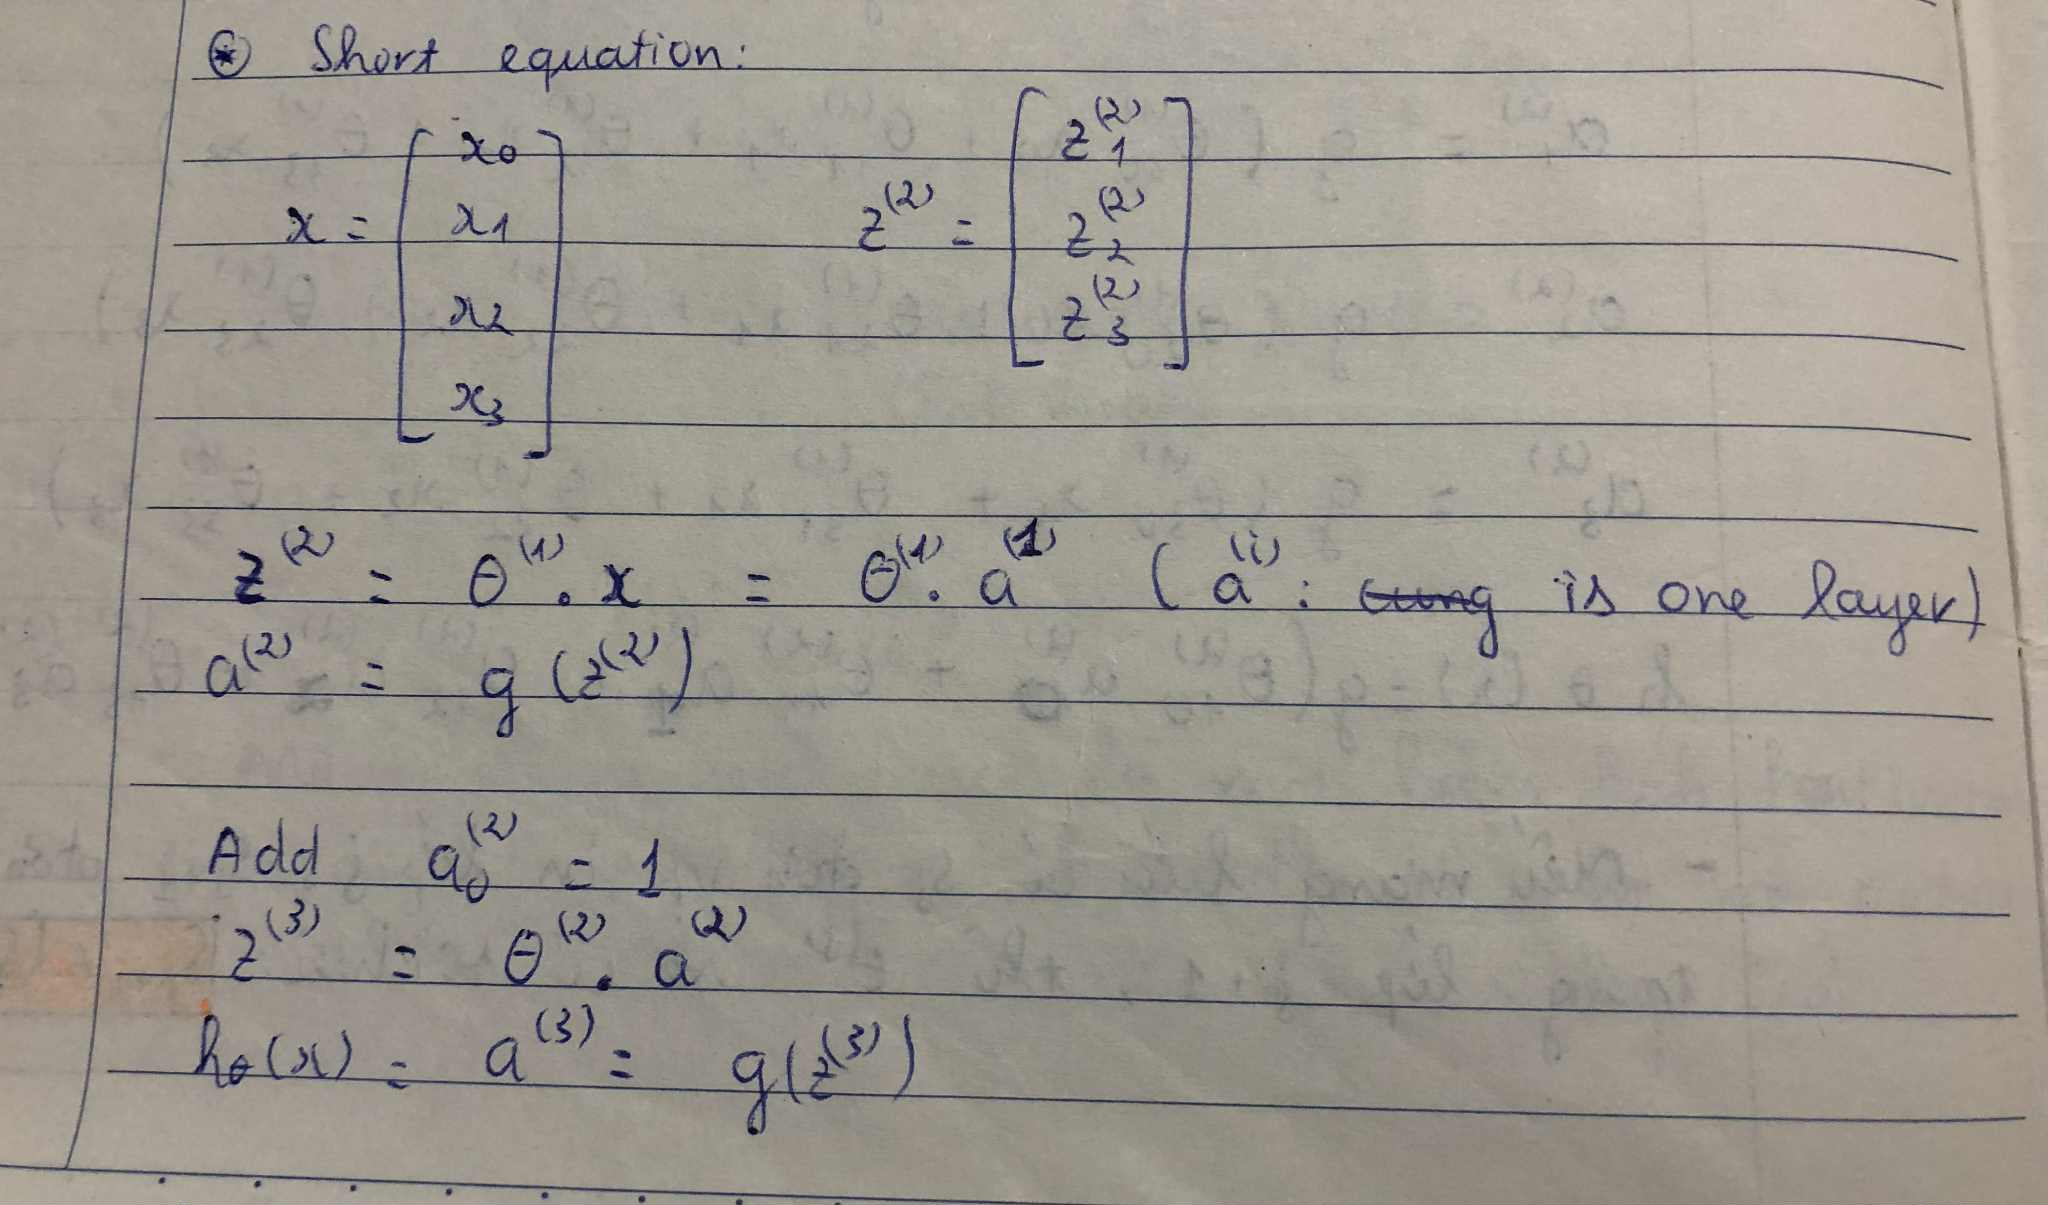 ⊛ Short equation:
x = [ x₀ x₁ x₂ x₃ ]
z⁽²⁾ = [ z₁⁽²⁾ z₂⁽²⁾ z₃⁽²⁾ ]
z⁽²⁾ = θ⁽¹⁾ . x = θ⁽¹⁾ . a⁽¹⁾ ( a⁽ⁱ⁾ : is one layer)
a⁽²⁾ = g (z⁽²⁾)
Add a₀⁽²⁾ = 1
z⁽³⁾ = θ⁽²⁾ . a⁽²⁾
hθ(x) = a⁽³⁾ = g(z⁽³⁾)